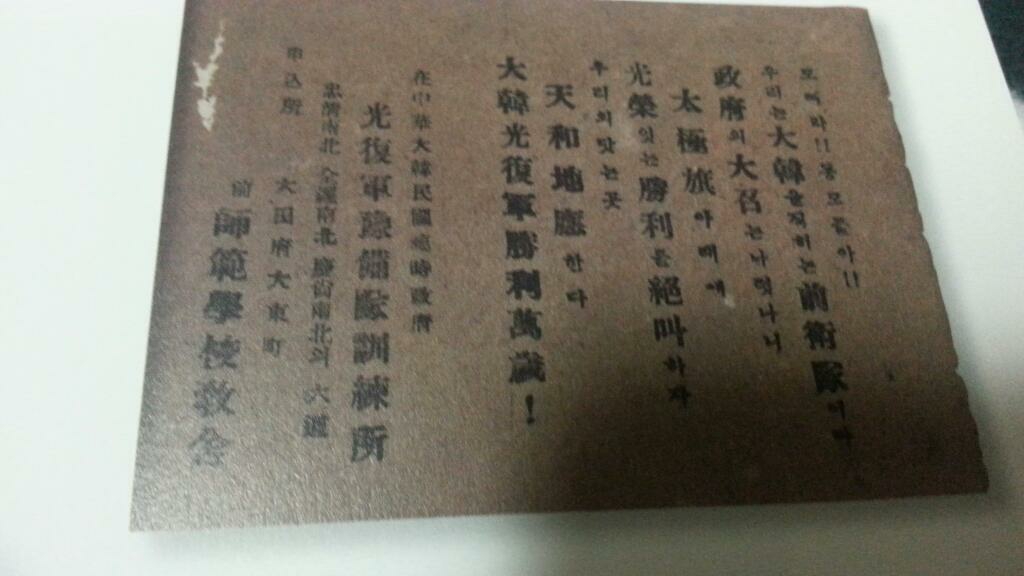 모혀라!! 동모들아!!
우리는大韓을직히는前衛隊이다
政府의大召는나렷나니
太極旗아래에
光榮잇는勝利를絕叫하자
우리의맛는곳
天和地應한다
大韓光復軍勝利萬歲!
在中華大韓民國臨時政府
光復軍豫備隊訓練所
忠淸南北 全羅南北 慶尙南北의 六道
申込所 大田府大東町
前 師範學校敎舍